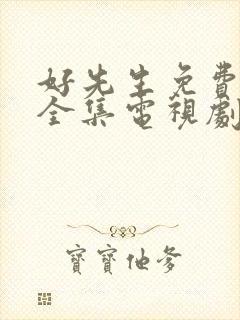 好先生免費
全集電視劇
寶寶他爹